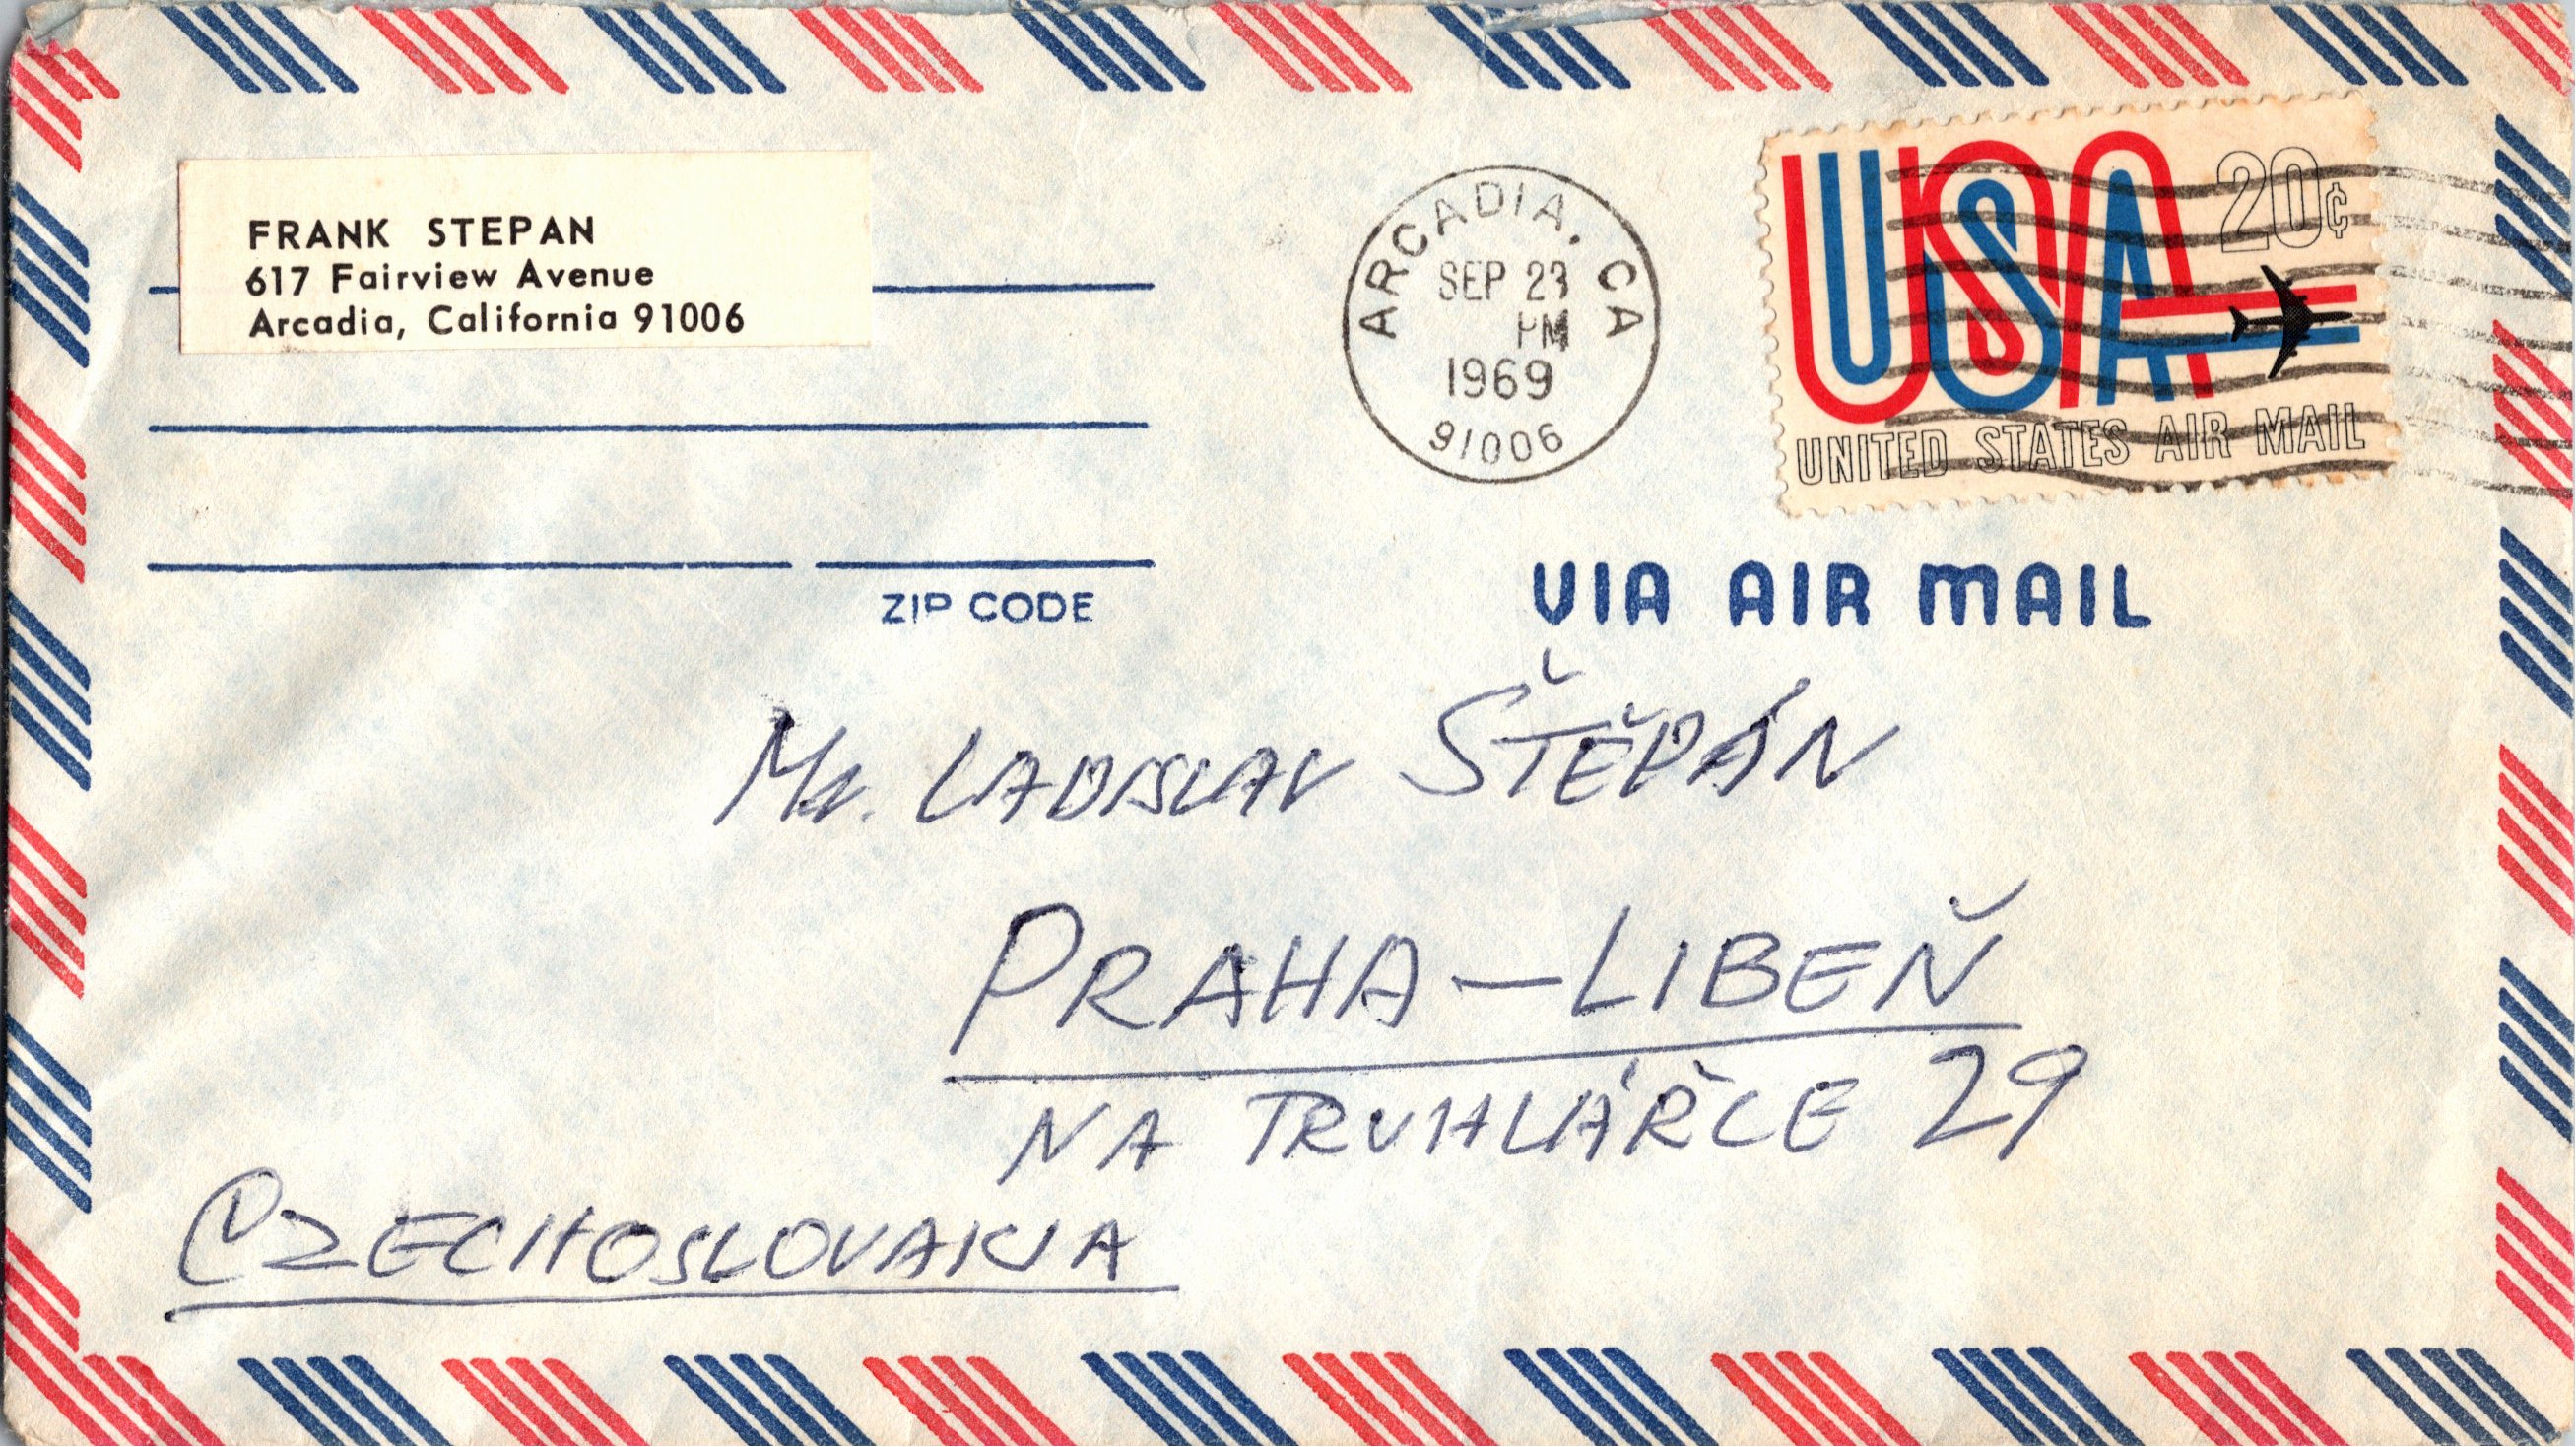 FRANK STEPAN
617 Fairview Avenue
Arcadia, California 91006
ZIP CODE
ARCADIA, CA
SEP 23
PM
1969
91006
USA 20¢
UNITED STATES AIR MAIL
VIA AIR MAIL
Mr. LADISLAV ŠTĚPÁN
PRAHA-LIBEŇ
NA TRUHLÁŘCE 29
CZECHOSLOVAKIA